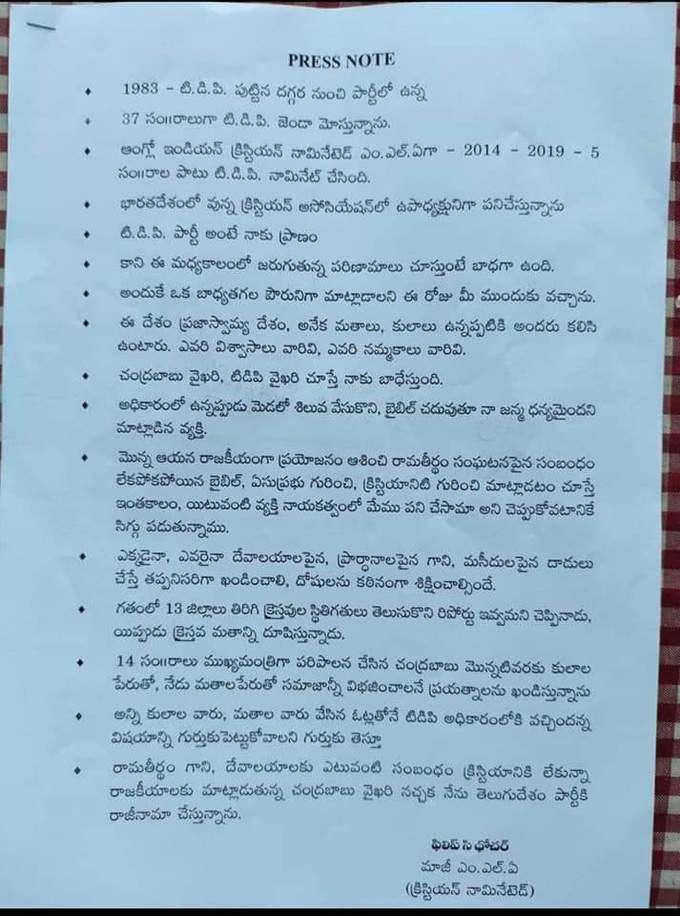 PRESS NOTE
♦ 1983 - టి.డి.పి. పుట్టిన దగ్గర నుంచి పార్టీలో ఉన్న
♦ 37 సం॥రాలుగా టి.డి.పి. జెండా మోస్తున్నాను.
♦ ఆంగ్లో ఇండియన్ క్రిస్టియన్ నామినేటెడ్ ఎం.ఎల్.ఏగా - 2014 - 2019 - 5
సం॥రాల పాటు టి.డి.పి. నామినేట్ చేసింది.
♦ భారతదేశంలో వున్న క్రిస్టియన్ అసోసియేషన్‌లో ఉపాధ్యక్షునిగా పనిచేస్తున్నాను
♦ టి.డి.పి. పార్టీ అంటే నాకు ప్రాణం
♦ కాని ఈ మధ్యకాలంలో జరుగుతున్న పరిణామాలు చూస్తుంటే బాధగా ఉంది.
♦ అందుకే ఒక బాధ్యతగల పౌరునిగా మాట్లాడాలని ఈ రోజు మీ ముందుకు వచ్చాను.
♦ ఈ దేశం ప్రజాస్వామ్య దేశం, అనేక మతాలు, కులాలు ఉన్నప్పటికి అందరు కలిసి
ఉంటారు. ఎవరి విశ్వాసాలు వారివి, ఎవరి నమ్మకాలు వారివి.
♦ చంద్రబాబు వైఖరి, టిడిపి వైఖరి చూస్తే నాకు బాధేస్తుంది.
♦ అధికారంలో ఉన్నప్పుడు మెడలో శిలువ వేసుకొని, బైబిల్ చదువుతూ నా జన్మ ధన్యమైందని
మాట్లాడిన వ్యక్తి.
♦ మొన్న ఆయన రాజకీయంగా ప్రయోజనం ఆశించి రామతీర్థం సంఘటనపైన సంబంధం
లేకపోకపోయిన బైబిల్, ఏసుప్రభు గురించి, క్రిస్టియానిటి గురించి మాట్లాడటం చూస్తే
ఇంతకాలం, యిటువంటి వ్యక్తి నాయకత్వంలో మేము పని చేసామా అని చెప్పుకోవటానికే
సిగ్గు పడుతున్నాము.
♦ ఎక్కడైనా, ఎవరైనా దేవాలయాలపైన, ప్రార్ధానాలపైన గాని, మసీదులపైన దాడులు
చేస్తే తప్పనిసరిగా ఖండించాలి, దోషులను కఠినంగా శిక్షించాల్సిందే.
♦ గతంలో 13 జిల్లాలు తిరిగి క్రైస్తవుల స్థితిగతులు తెలుసుకొని రిపోర్టు ఇవ్వమని చెప్పినాడు,
యిప్పుడు క్రైస్తవ మతాన్ని దూషిస్తున్నాడు.
♦ 14 సం॥రాలు ముఖ్యమంత్రిగా పరిపాలన చేసిన చంద్రబాబు మొన్నటివరకు కులాల
పేరుతో, నేడు మతాలపేరుతో సమాజాన్నీ విభజించాలనే ప్రయత్నాలను ఖండిస్తున్నాను
♦ అన్ని కులాల వారు, మతాల వారు వేసిన ఓట్లతోనే టిడిపి అధికారంలోకి వచ్చిందన్న
విషయాన్ని గుర్తుకుపెట్టుకోవాలని గుర్తుకు తెస్తూ
♦ రామతీర్థం గాని, దేవాలయాలకు ఎటువంటి సంబంధం క్రిస్టియానికి లేకున్నా
రాజకీయాలకు మాట్లాడుతున్న చంద్రబాబు వైఖరి నచ్చక నేను తెలుగుదేశం పార్టీకి
రాజీనామా చేస్తున్నాను.
ఫిలిప్ సి థోచర్
మాజీ ఎం.ఎల్.ఏ
(క్రిస్టియన్ నామినైటెడ్)